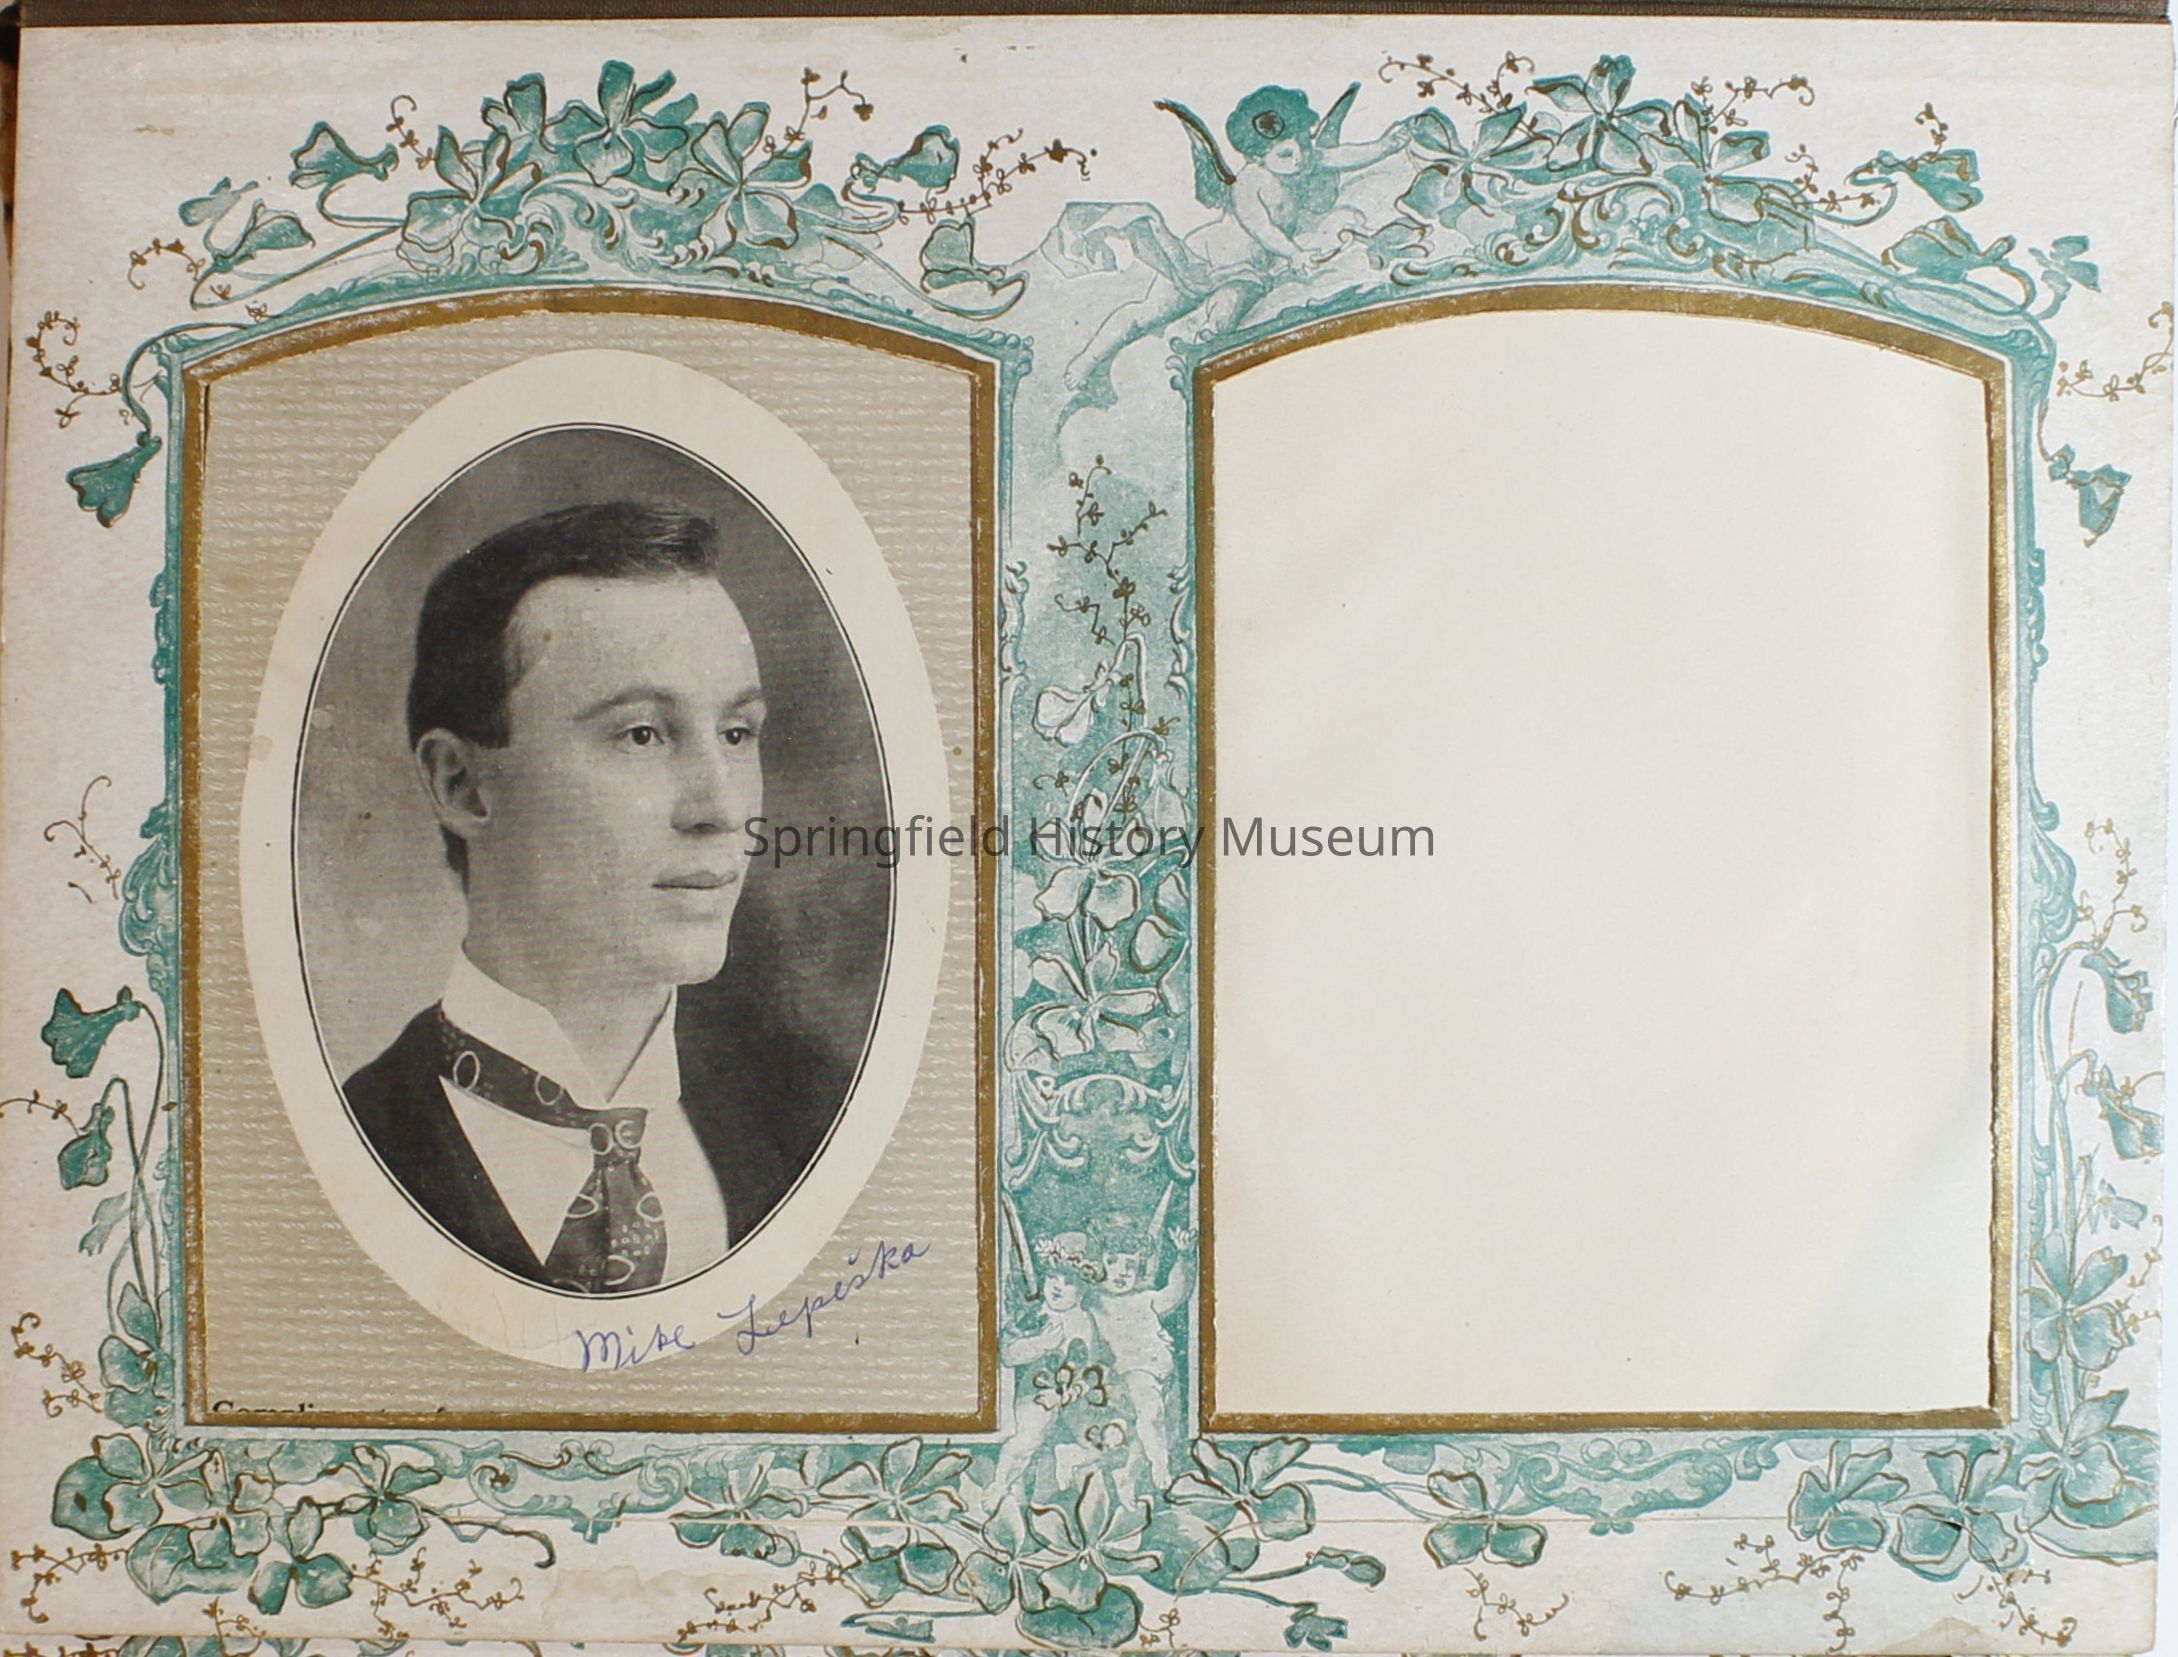 Springfield History Museum
Mike Lepeška